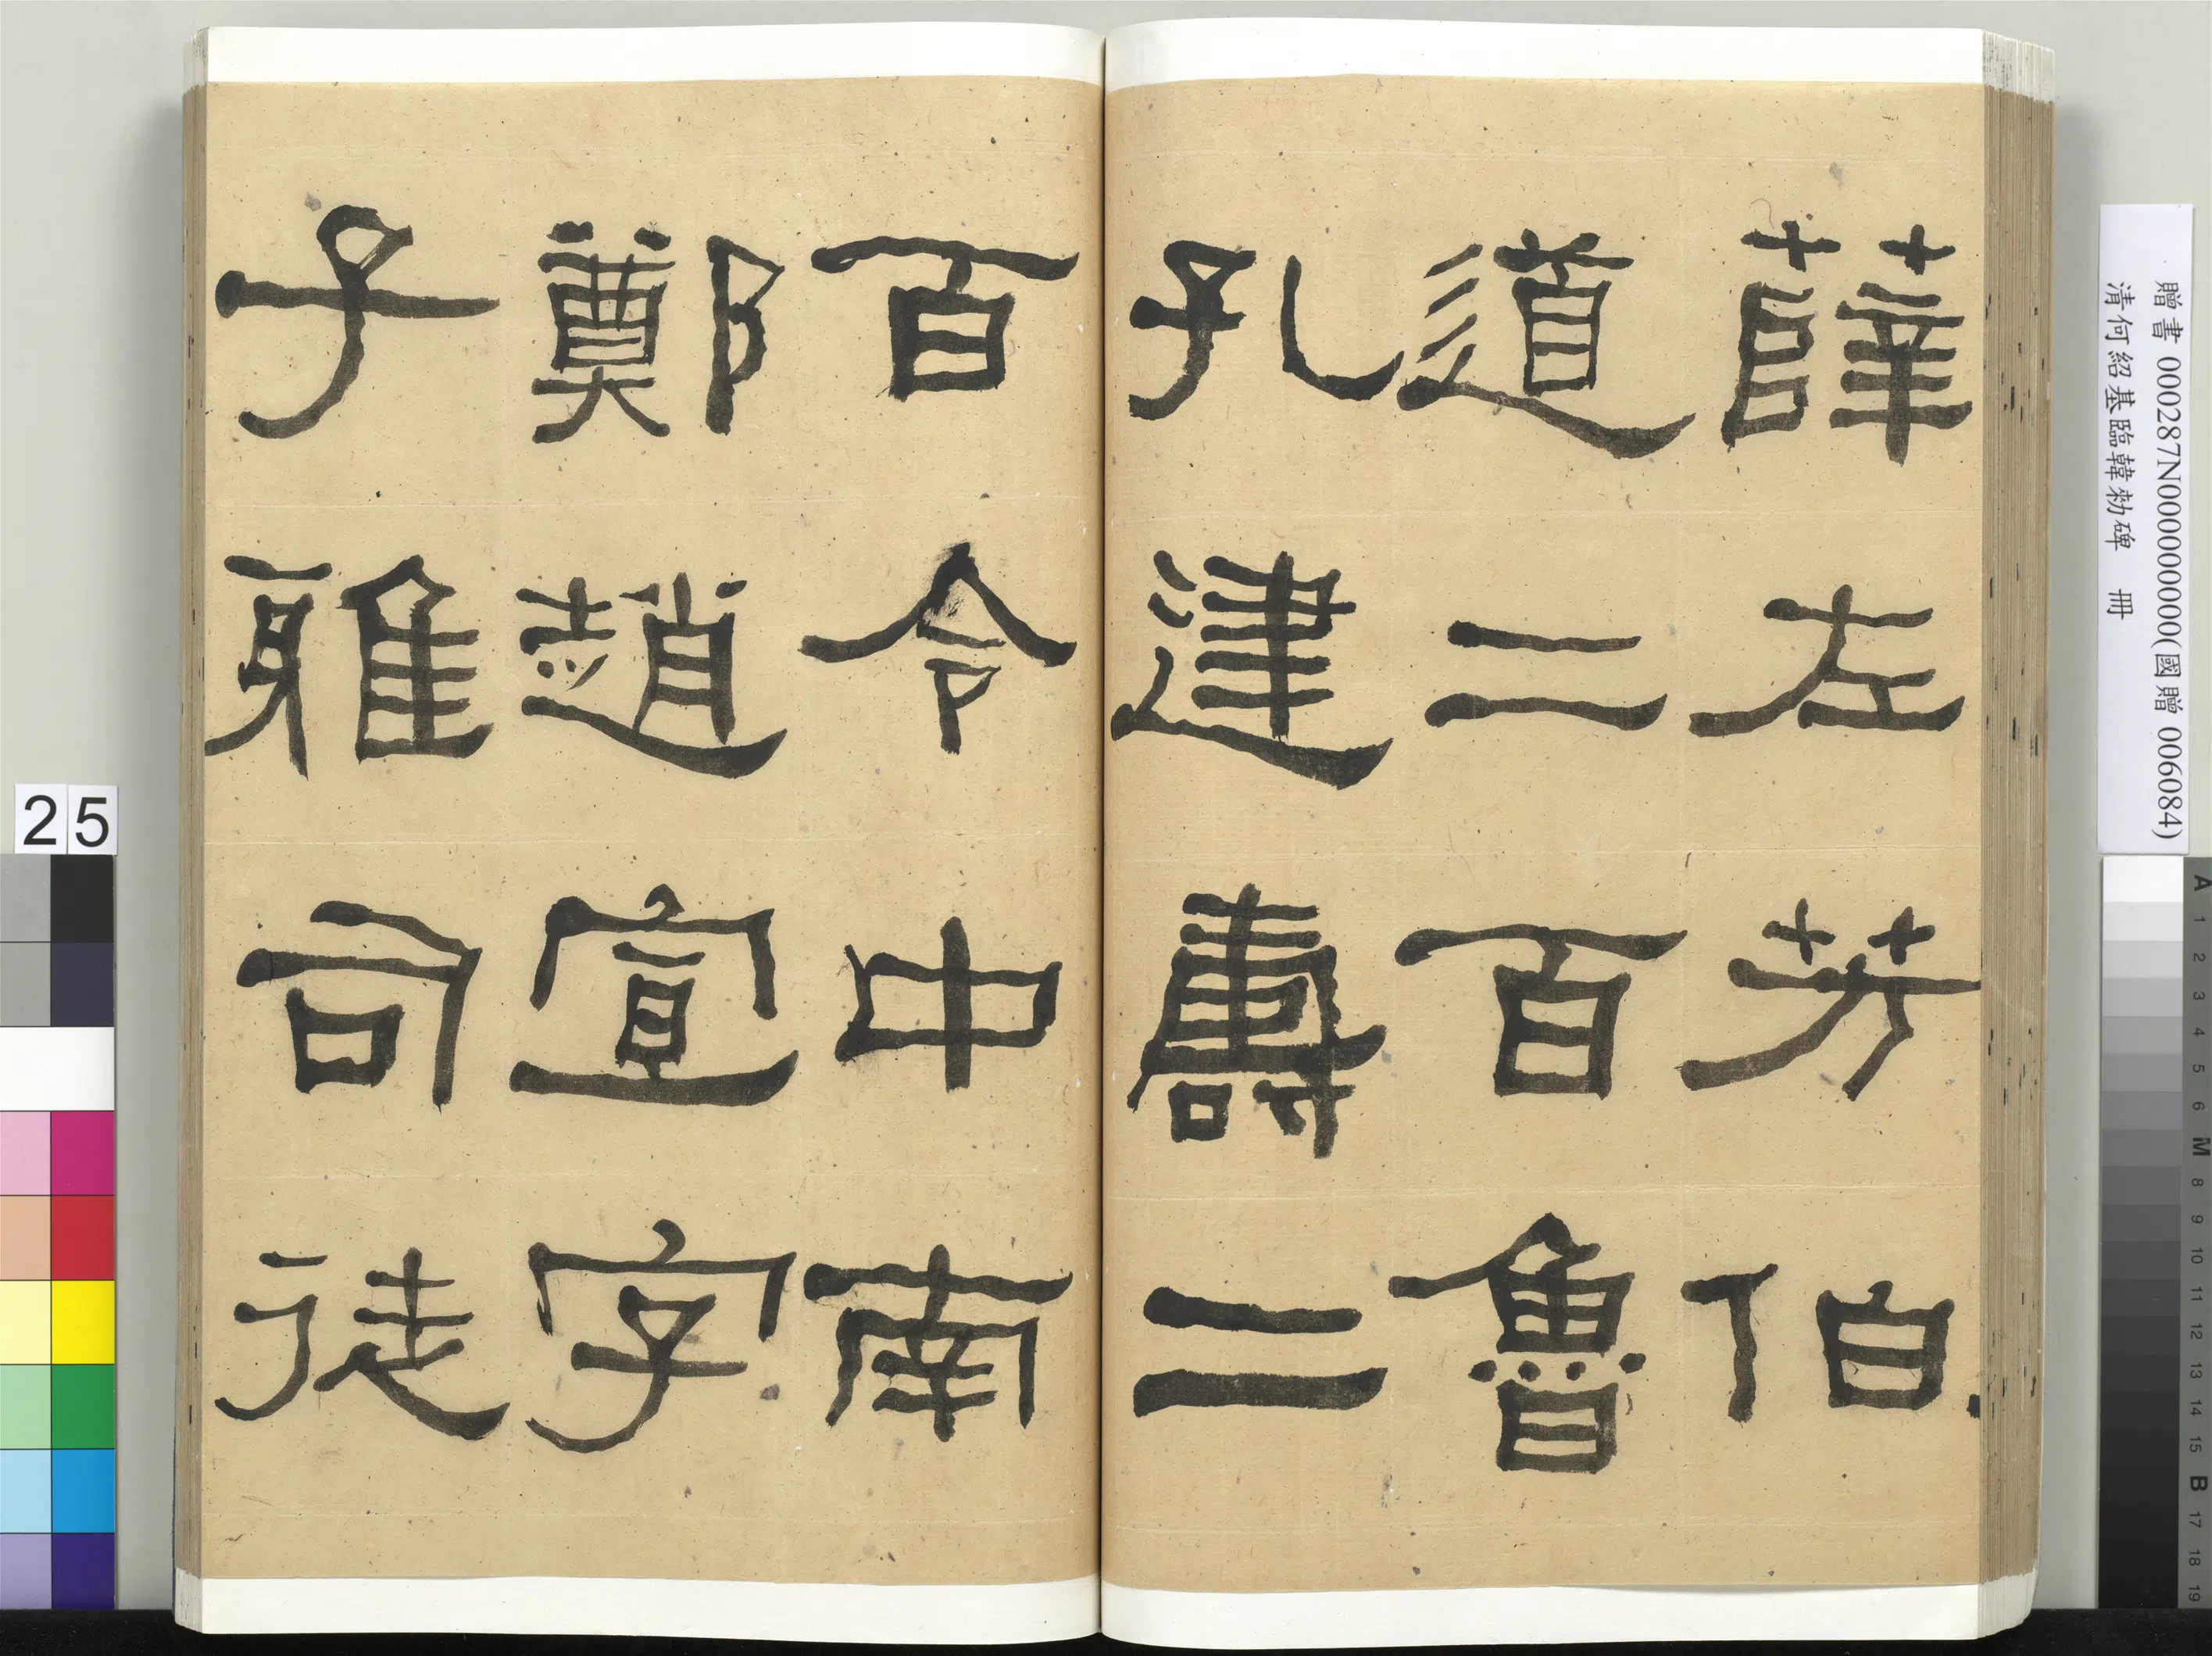 薛左芳伯
道二百魯
孔建壽二
百令中南
鄭趙宣字
子雅司徒
贈書 000287N000000000(國贈 006084)
清何紹基臨韓勑碑 冊
25
A 1 2 3 4 5 6 M 8 9 10 11 12 13 14 15 B 17 18 19